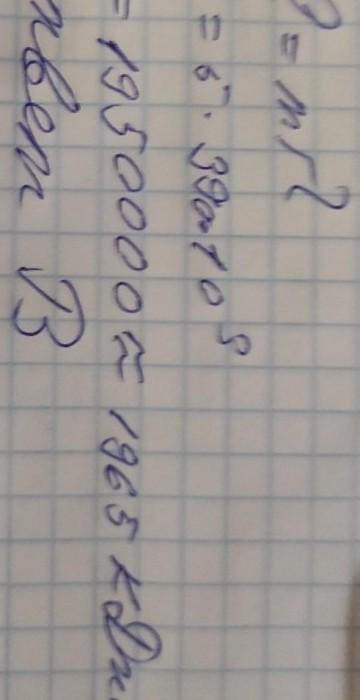 = mλ
= 5 · 390 · 10⁵
= 1950000 ≈ 1965 кДж
твет В